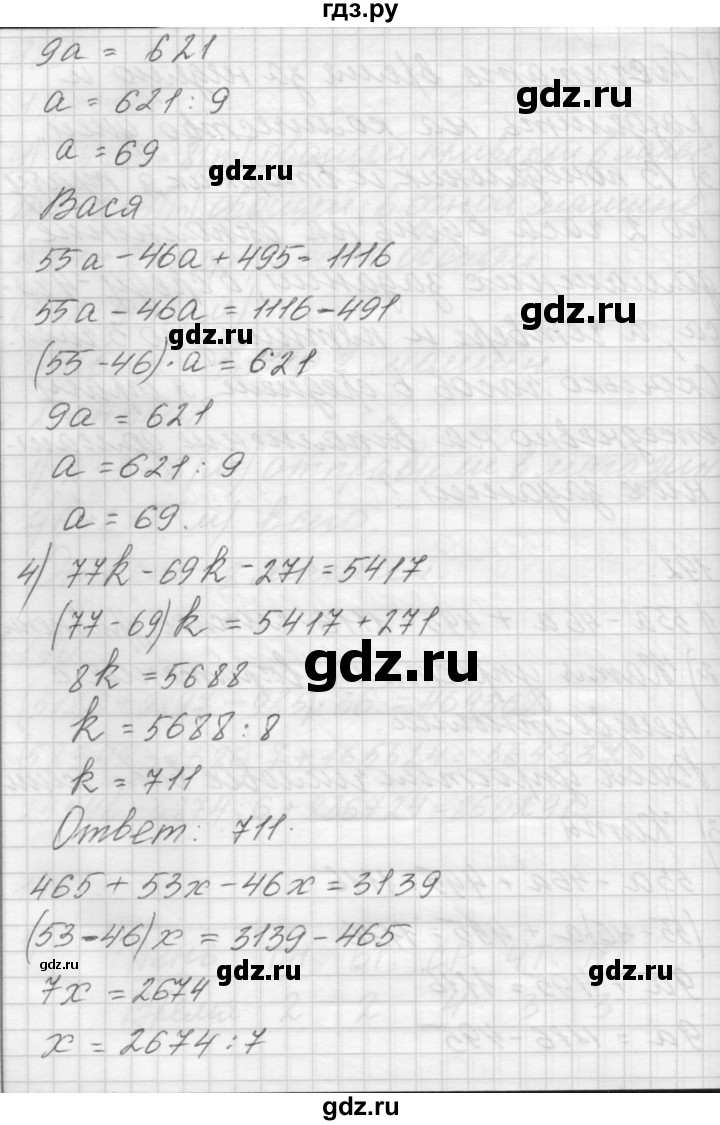 гдз.ру
9a = 621
a = 621 : 9
gdz.ru
a = 69
gdz.ru
Вася
55a - 46a + 495 = 1116
55a - 46a = 1116 - 491
gdz.ru
gdz.ru
(55 - 46) · a = 621
9a = 621
a = 621 : 9
a = 69.
4) 77k - 69k - 271 = 5417
(77 - 69)k = 5417 + 271
gdz.ru
8k = 5688
k = 5688 : 8
k = 711
Ответ: 711.
465 + 53x - 46x = 3139
(53 - 46)x = 3139 - 465
gdz.ru
gdz.ru
gdz.ru
7x = 2674
x = 2674 : 7
gdz.ru